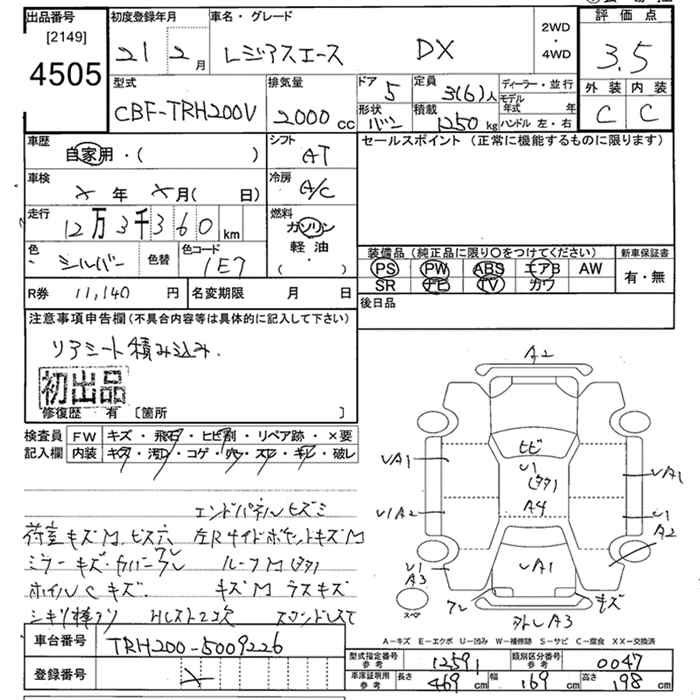 出品番号 初度登録年月 車名・グレード 2WD・4WD 評価点
[2149]
4505
21 2月 レジアスエース DX 3.5
型式 排気量 ドア 5 定員 3(6)人 ディーラー・並行 外装 内装
CBF-TRH200V 2000cc 形状 バン 積載 1250kg モデル年式 年 C C
ハンドル 左・右
車歴 シフト セールスポイント (正常に機能するものに限ります)
自家用・( ) AT
車検 冷房
年 月( 日) A/C
走行 燃料
12万3千360km ガソリン
軽油
( ・ )
色 色替 色コード
シルバー 1E7
装備品(純正品に限り○をつけてください) 新車保証書
PS PW ABS エアB AW 有・無
SR ナビ TV カワ
R券 11,140円 名変期限 月 日 後日品
注意事項申告欄(不具合内容等は具体的に記入して下さい)
リアシート積み込み.
初出品
修復歴 有 [箇所 ]
検査員 FW キズ・飛石・ヒビ割・リペア跡・×要
記入欄 内装 キズ・汚レ・コゲ・穴・スレ・キレ・破レ
A2
ヒビ
U1
(タタ)
A4
UA1
UA1
U1A2
UA1
U1
A2
U1
A3
スペア
キズ
外しA3
エンドパネルヒズミ
荷室キズM ビス穴 左RサイドポケットキズM
ミラーキズ・カバーワレ ルーフM(タタ)
ホイルCキズ キズM ラスキズ
A−キズ E−エクボ U−凹み W−補修跡 S−サビ C−腐食 XX−交換済
車台番号 TRH200-5009226
登録番号
型式指定番号 参考 12591 類別区分番号 参考 0047
車庫証明用 参考 長さ 469cm 幅 169cm 高さ 198cm